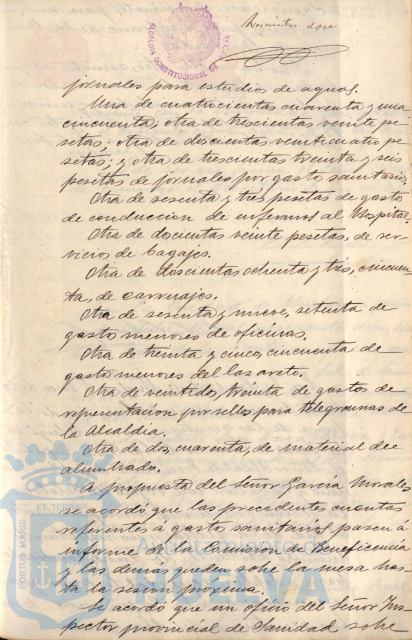 Doscientos doce
ALCALDIA CONSTITUCIONAL DE HUELVA
jornales para estudios de aguas.
Una de cuatrocientas cuarenta y una
cincuenta; otra de trescientas veinte pe-
setas; otra de doscientas veinticuatro pe-
setas; y otra de trescientas treinta y seis
pesetas de jornales por gasto sanitario.
Otra de sesenta y tres pesetas de gasto
de conduccion de enfermos al Hospital.
Otra de docientas veinte pesetas, de ser-
vicio de bagajes.
Otra de doscientas ochenta y tres, cincuen-
ta, de carruajes.
Otra de sesenta y nueve, setenta de
gasto menores de oficinas.
Otra de treinta y cinco, cincuenta de
gasto menores del Lazareto.
Otra de veintidos, treinta de gastos de
representacion por sellos para telegramas de
la Alcaldia.
Otra de dos, cuarenta, de material de
alumbrado.
A propuesta del Señor Garcia Morales
se acordó que las precedentes cuentas
referentes á gasto sanitarios, pasen á
informe de la Comision de Beneficencia
y las demás queden sobre la mesa has-
ta la sesion proxima.
Se acordó que un oficio del Señor Ins-
pector provincial de Sanidad sobre
PORTUS MARIS
Ayuntamiento de
HUELVA